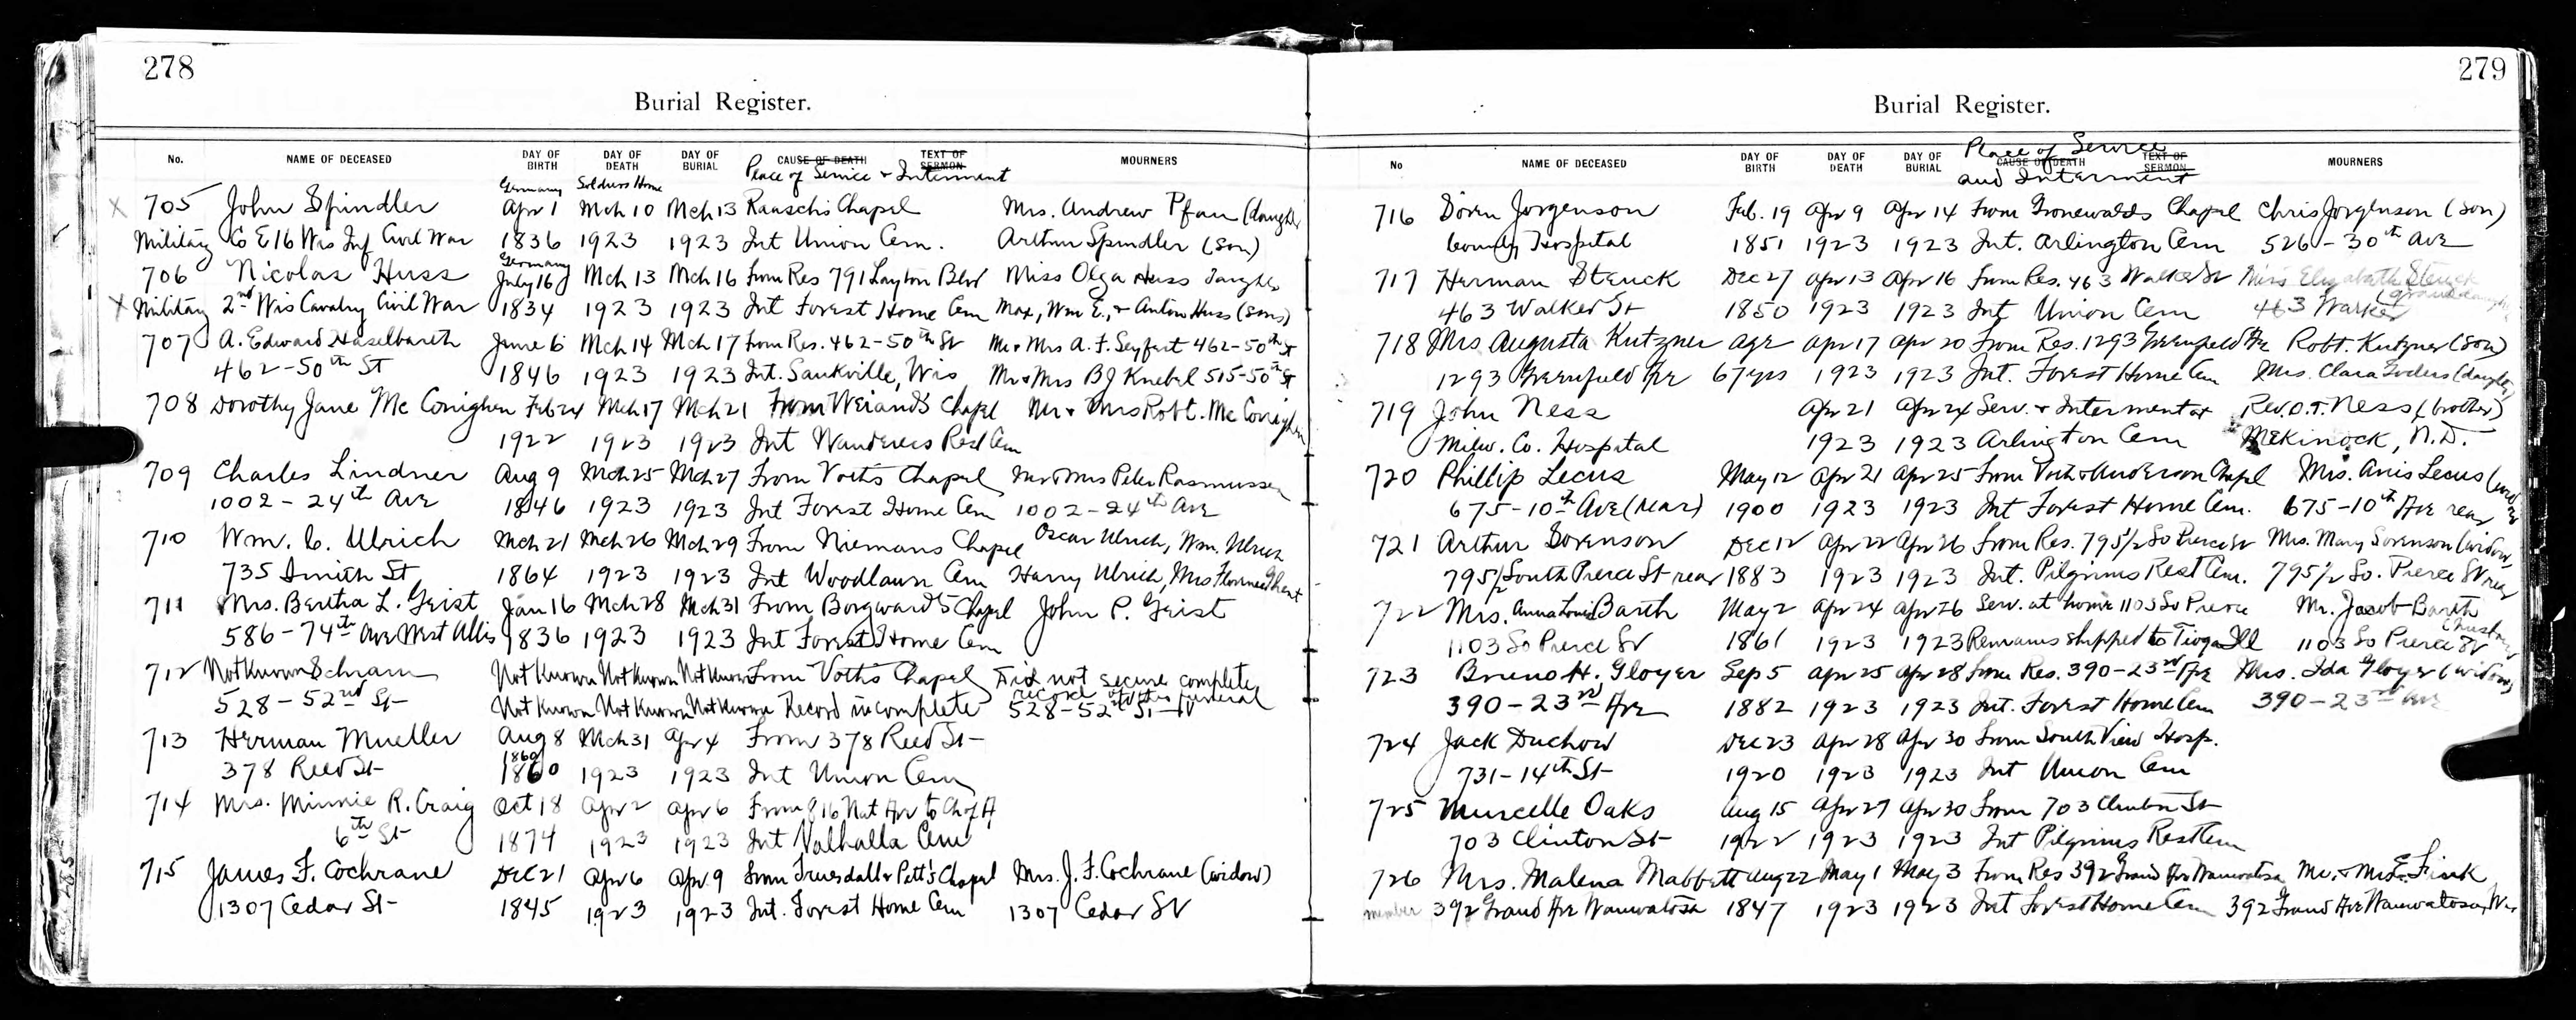 278
Burial Register.
No. NAME OF DECEASED DAY OF BIRTH DAY OF DEATH DAY OF BURIAL CAUSE OF DEATH TEXT OF SERMON MOURNERS
Place of Service & Interment
Germany Soldiers Home
X 705 John Spindler Apr 1 Mch 10 Mch 13 Raaschs Chapel Mrs. Andrew Pfau
Military Co E 16 Wis Inf Civil War 1836 1923 1923 Int Union Cem. Arthur Spindler (Son)
Germany
706 Nicolas Huss July 16 Mch 13 Mch 16 from Res 791 Layton Blvd Miss Olga Huss
X Military 2nd Wis Cavalry Civil War 1834 1923 1923 Int Forest Home Cem Max, Wm E., & Anton Huss (Sons)
707 A. Edward Haselbarth June 6 Mch 14 Mch 17 from Res. 462-50th St Mr & Mrs A. F. Seyfert 462-50th St
462-50th St 1846 1923 1923 Int. Saukville, Wis Mr & Mrs B J Knebel 515-50th St
708 Dorothy Jane Mc Conighen Feb 24 Mch 17 Mch 21 From Weiand's Chapel Mr & Mrs Robt. Mc Conighen
1922 1923 1923 Int Wanderers Rest Cem
709 Charles Lindner Aug 9 Mch 25 Mch 27 From Voths Chapel Mr & Mrs Peter Rasmussen
1002-24th Ave 1846 1923 1923 Int Forest Home Cem 1002-24th Ave
710 Wm. C. Ulrich Mch 21 Mch 26 Mch 29 From Niemans Chapel Oscar Ulrich, Wm. Ulrich
735 Smith St 1864 1923 1923 Int Woodlawn Cem Harry Ulrich, Mrs Florence
711 Mrs. Bertha L. Geist Jan 16 Mch 28 Mch 31 From Borgwardt's Chapel John P. Geist
586-74th Ave West Allis 1836 1923 1923 Int Forest Home Cem
712 Not Known Schram Not Known Not Known Not Known From Voth's Chapel Did not secure complete
record of this funeral
528-52nd St Not Known Not Known Not Known Record incomplete 528-52nd St
713 Herman Mueller Aug 8 Mch 31 Apr 4 From 378 Reed St
1860
378 Reed St 1860 1923 1923 Int Union Cem
714 Mrs. Minnie R. Craig Oct 18 Apr 2 Apr 6 From 816 Nat Ave to
6th St 1874 1923 1923 Int Valhalla Cem
715 James F. Cochrane Dec 21 Apr 6 Apr. 9 from Truesdall & Pett's Chapel Mrs. J. F. Cochrane (widow)
1307 Cedar St 1845 1923 1923 Int. Forest Home Cem 1307 Cedar St
279
Burial Register.
No NAME OF DECEASED DAY OF BIRTH DAY OF DEATH DAY OF BURIAL CAUSE OF DEATH TEXT OF SERMON MOURNERS
Place of Service
and Interment
716 Soren Jorgenson Feb. 19 Apr 9 Apr 14 From Gronewalds Chapel Chris Jorgenson (Son)
County Hospital 1851 1923 1923 Int. Arlington Cem 526-30th Ave
717 Herman Steuck Dec 27 Apr 13 Apr 16 From Res. 463 Walker St Miss Elizabeth Steuck
(granddaughter)
463 Walker St 1850 1923 1923 Int Union Cem 463 Walker
718 Mrs Augusta Kutzner age Apr 17 Apr 20 From Res. 1293 Greenfield Ave Robt. Kutzner (Son)
1293 Greenfield Ave 67 yrs 1923 1923 Int. Forest Home Cem Mrs. Clara
719 John Ness Apr 21 Apr 24 Serv. & Interment at Rev. O. T. Ness (brother)
Milw. Co. Hospital 1923 1923 Arlington Cem Mekinock, N.D.
720 Phillip Lecus May 12 Apr 21 Apr 25 From Voth & Anderson Chapel Mrs. Anis Lecus
675-10th Ave (rear) 1900 1923 1923 Int Forest Home Cem. 675-10th Ave rear
721 Arthur Sorenson Dec 12 Apr 22 Apr 26 From Res. 795½ So Pierce St Mrs. Mary Sorenson (widow)
795½ South Pierce St rear 1883 1923 1923 Int. Pilgrims Rest Cem. 795½ So. Pierce St rear
722 Mrs. Anna Louise Barth May 2 Apr 24 Apr 26 Serv. at home 1103 So Pierce Mr. Jacob Barth
Husband
1103 So Pierce St 1861 1923 1923 Remains shipped to Tioga Ill 1103 So Pierce St
723 Bruno H. Gloyer Sep 5 Apr 25 Apr 28 from Res. 390-23rd Ave Mrs. Ida Gloyer (widow)
390-23rd Ave 1882 1923 1923 Int. Forest Home Cem 390-23rd Ave
724 Jack Duchow Dec 23 Apr 28 Apr 30 From South View Hosp.
731-14th St 1920 1923 1923 Int Union Cem
725 Murcelle Oaks Aug 15 Apr 27 Apr 30 From 703 Clinton St
703 Clinton St 1922 1923 1923 Int Pilgrims Rest Cem
726 Mrs. Malena Mabbett Aug 22 May 1 May 3 From Res 392 Grand Ave Wauwatosa Mr. & Mrs E. Fink
member 392 Grand Ave Wauwatosa 1847 1923 1923 Int Forest Home Cem 392 Grand Ave Wauwatosa, Wis